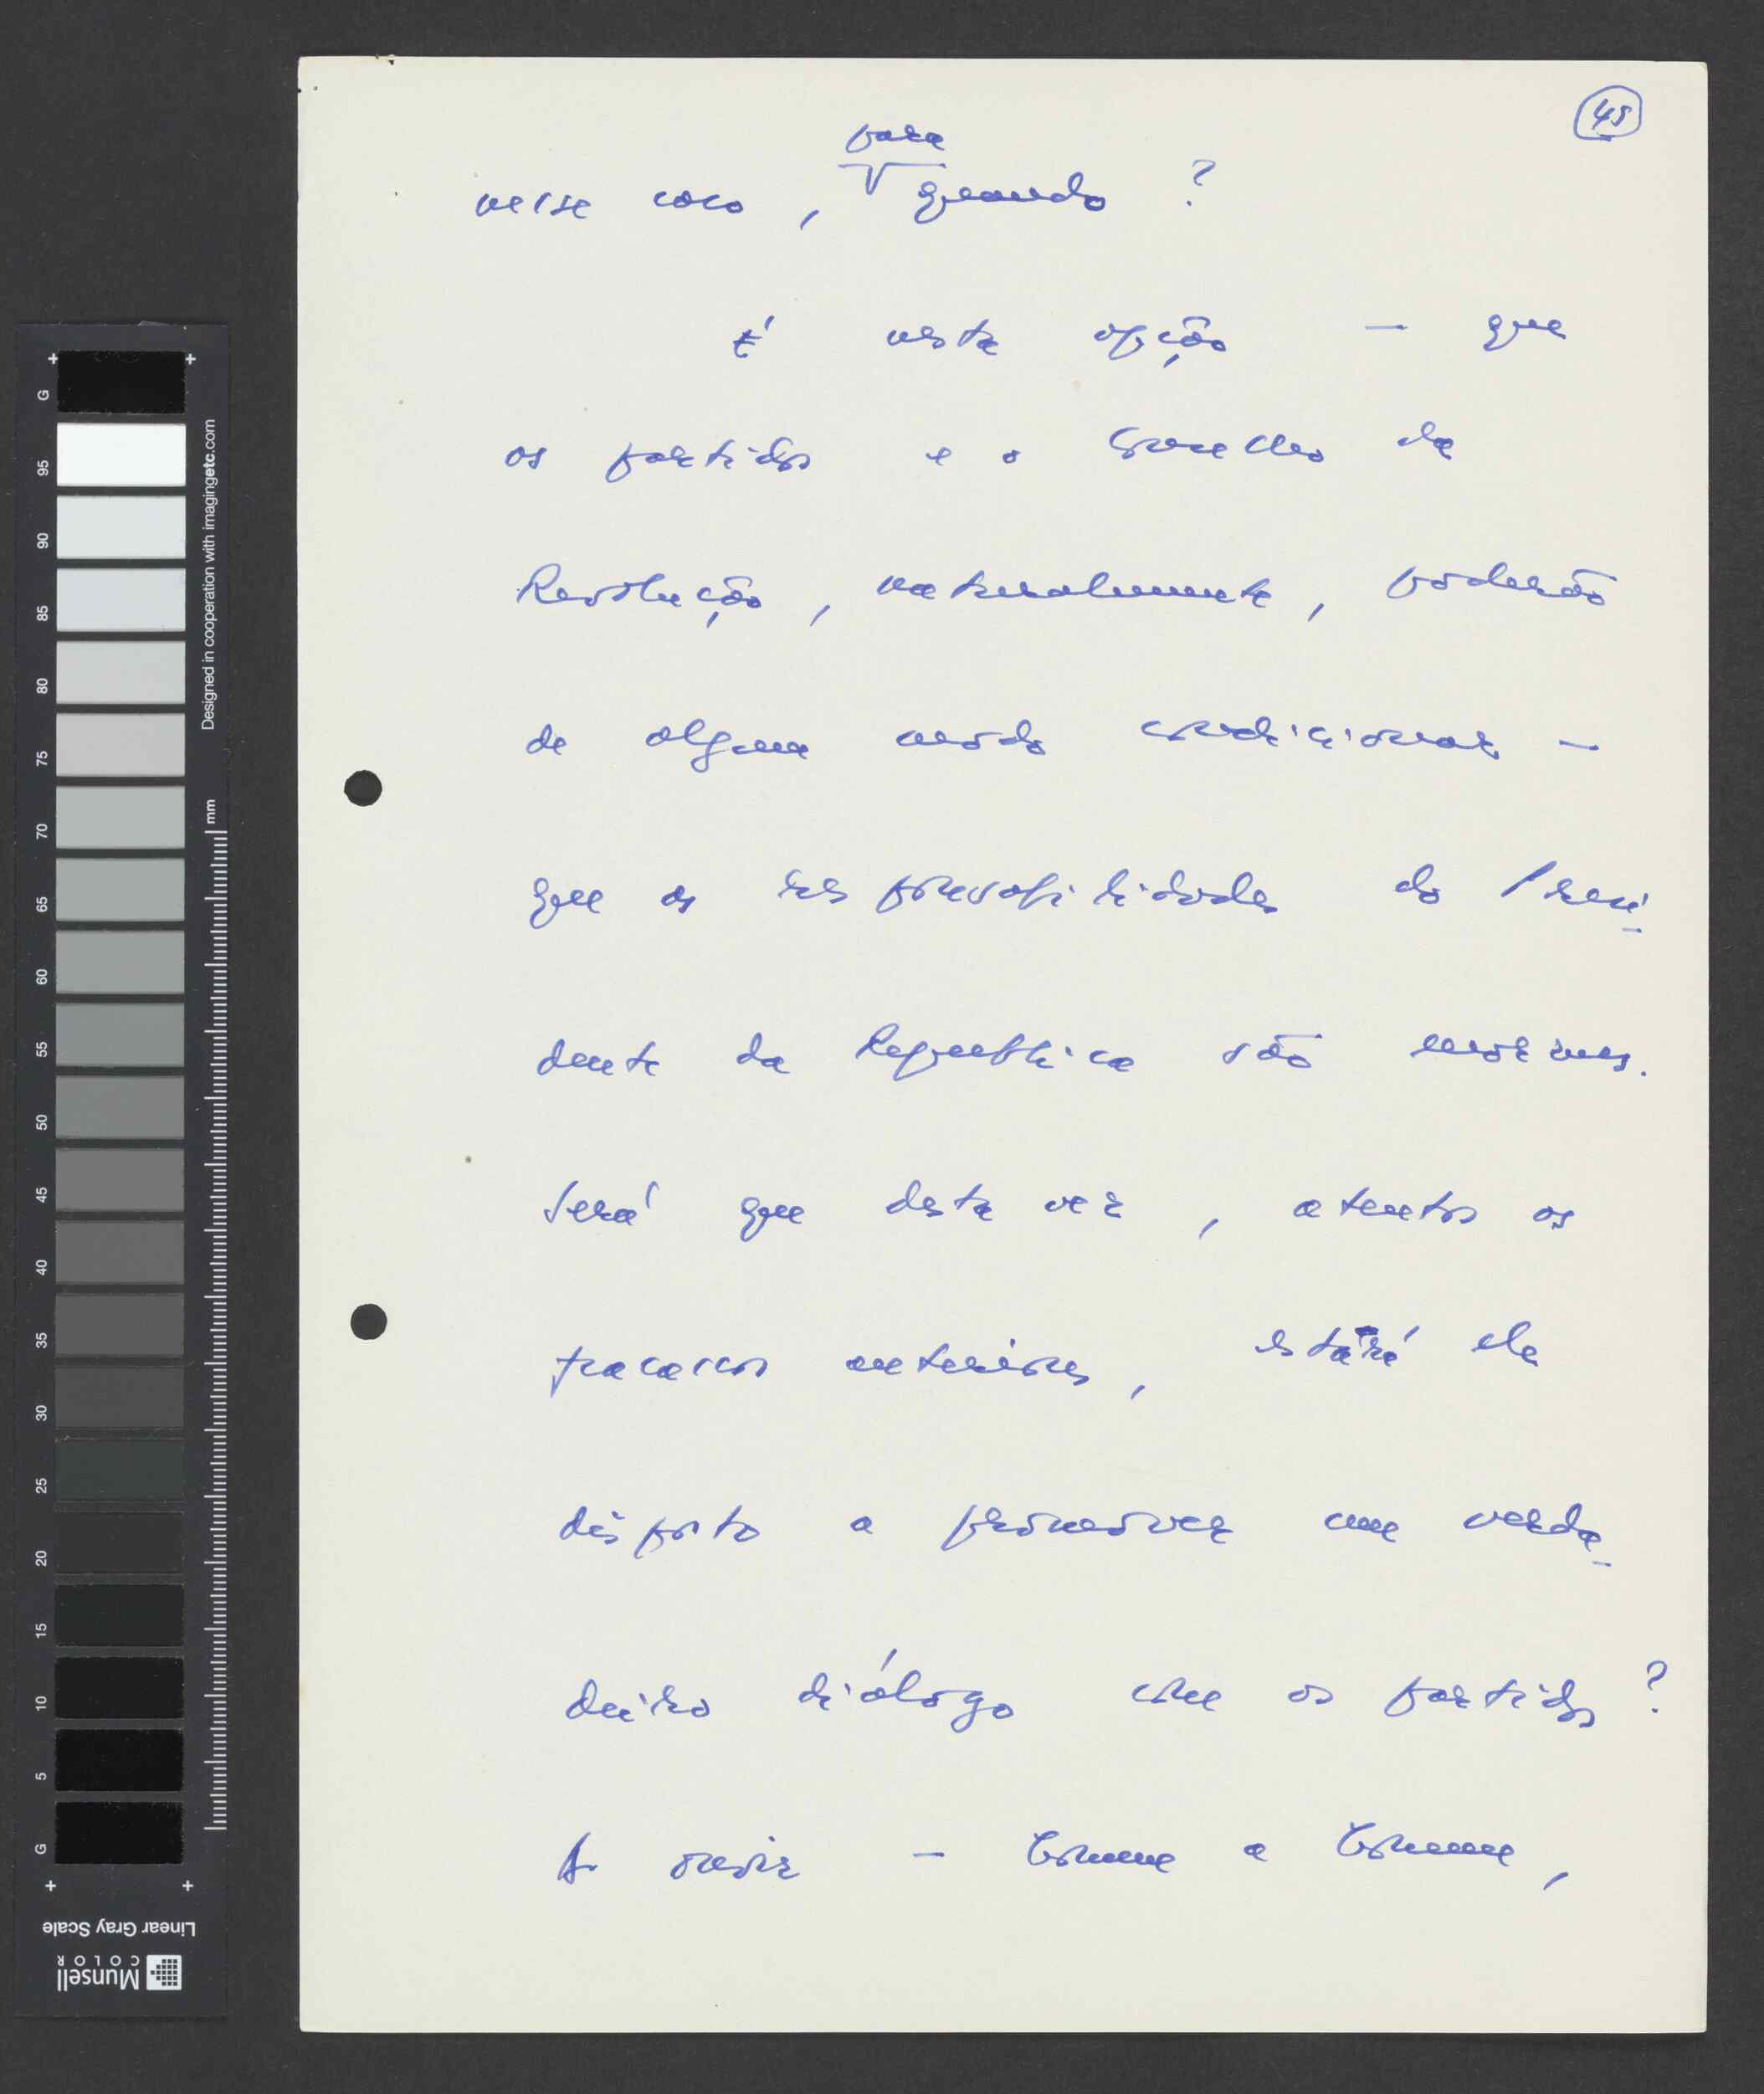 45
para
nesse caso, quando ?
É nesta opção — que
os partidos e o Conselho da
Revolução, naturalmente, poderão
de algum modo condicionar —
que as responsabilidades do Presi-
dente da Republica são enormes.
Será que desta vez, atentos os
fracassos anteriores, estará ele
disposto a promover um verda-
deiro diálogo com os partidos ?
A ouvir —
G 95 90 85 80 75 70 65 60 55 50 45 40 35 30 25 20 15 10 5 G
Designed in cooperation with imagingetc.com
mm
Linear Gray Scale
Munsell
COLOR